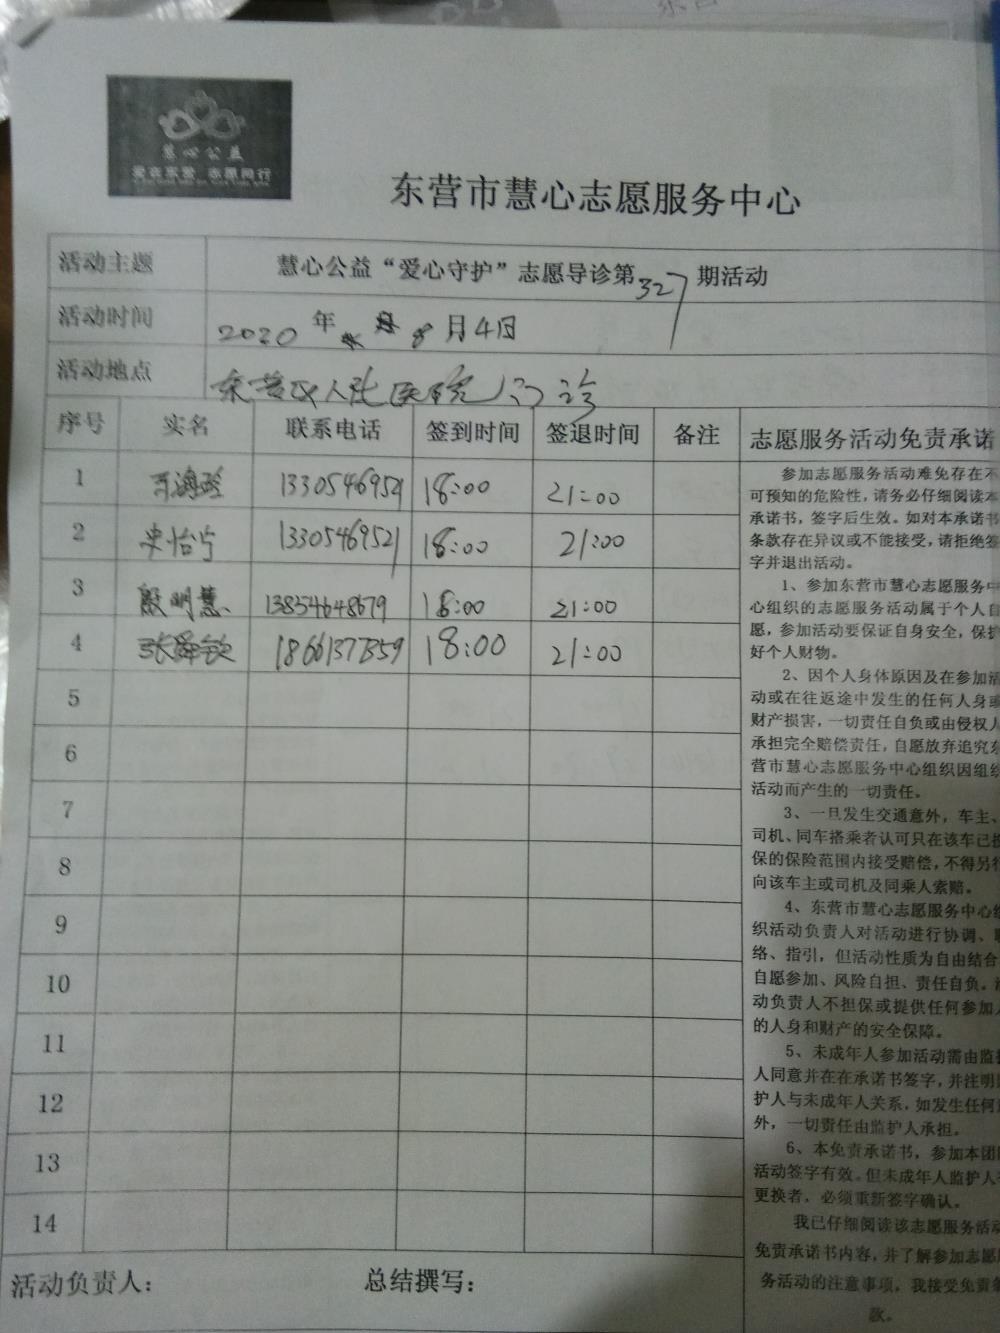 慧心公益
爱在东营 志愿同行
东营市慧心志愿服务中心
活动主题 慧心公益“爱心守护”志愿导诊第327期活动
活动时间 2020年8月4日
活动地点 东营区人民医院门诊
序号 实名 联系电话 签到时间 签退时间 备注
1 13305469521 18:00 21:00
2 史怡宁 13305469521 18:00 21:00
3 殷明慧 13854648679 18:00 21:00
4 18:00 21:00
5
6
7
8
9
10
11
12
13
14
活动负责人： 总结撰写：
志愿服务活动免责承诺
参加志愿服务活动难免存在不
可预知的危险性，请务必仔细阅读本
承诺书，签字后生效。如对本承诺书
条款存在异议或不能接受，请拒绝签
字并退出活动。
1、参加东营市慧心志愿服务中
心组织的志愿服务活动属于个人自
愿，参加活动要保证自身安全，保护
好个人财物。
2、因个人身体原因及在参加活
动或在往返途中发生的任何人身或
财产损害，一切责任自负或由侵权人
承担完全赔偿责任，自愿放弃追究东
营市慧心志愿服务中心组织因组织
活动而产生的一切责任。
3、一旦发生交通意外，车主、
司机、同车搭乘者认可只在该车已投
保的保险范围内接受赔偿，不得另行
向该车主或司机及同乘人索赔。
4、东营市慧心志愿服务中心组
织活动负责人对活动进行协调、联
络、指引，但活动性质为自由结合、
自愿参加、风险自担、责任自负。活
动负责人不担保或提供任何参加人
的人身和财产的安全保障。
5、未成年人参加活动需由监护
人同意并在在承诺书签字，并注明监
护人与未成年人关系，如发生任何意
外，一切责任由监护人承担。
6、本免责承诺书，参加本团队
活动签字有效。但未成年人监护人
更换者，必须重新签字确认。
我已仔细阅读该志愿服务活动
免责承诺书内容，并了解参加志愿服
务活动的注意事项，我接受免责条
款。